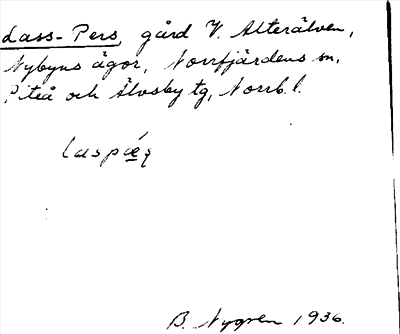 Lass-Pers, gård V. Alterälven,
Nybyns ägor, Norrfjärdens sn,
Piteå och Älvsby tg, Norrb. l.
laspæ̀ʒ
B. Nygren 1936.